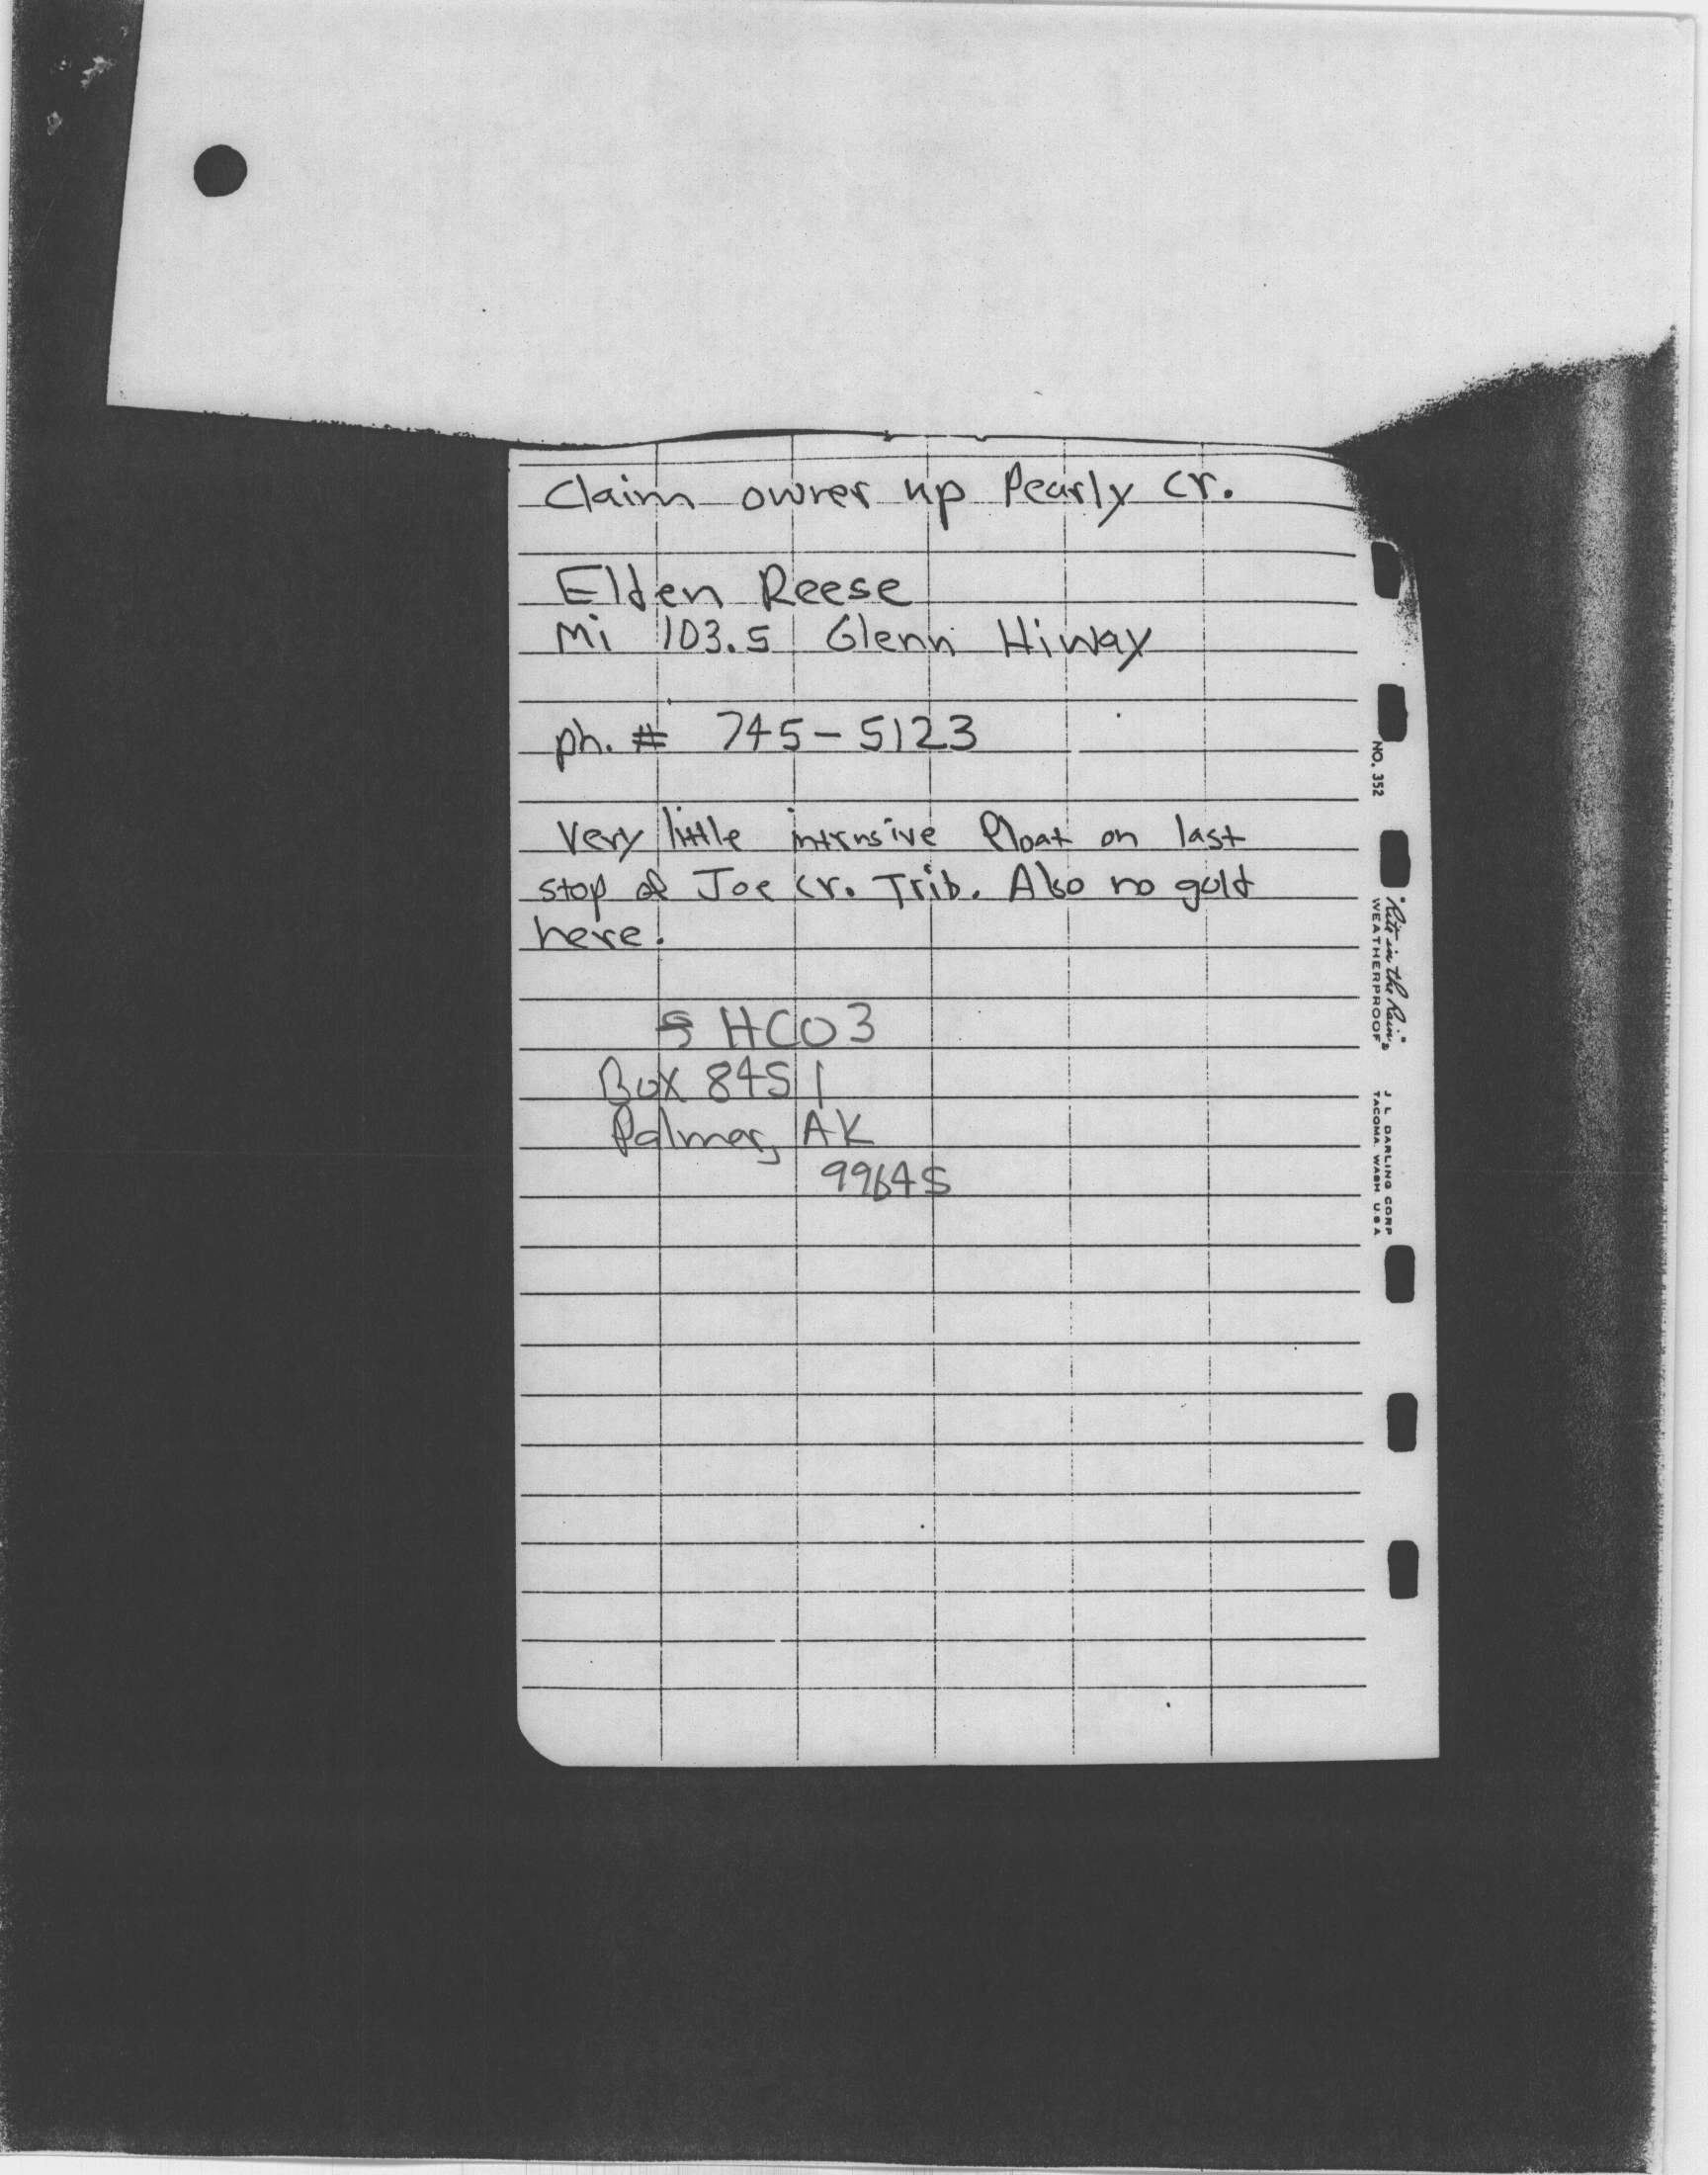 Claim owner up Pearly Cr.
Elden Reese
Mi 103.5 Glenn Hiway
ph. # 745-5123
Very little intrusive float on last
stop of Joe Cr. Trib. Also no gold
here.
HCO3
Box 8451
Palmer, AK
99645
NO. 352
"Rite in the Rain"
WEATHERPROOF
J. L. DARLING CORP
TACOMA, WASH U.S.A